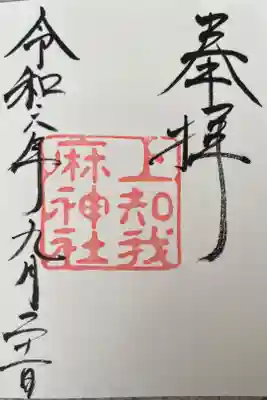 奉拝
上知我
麻神社
令和六年九月二十一日